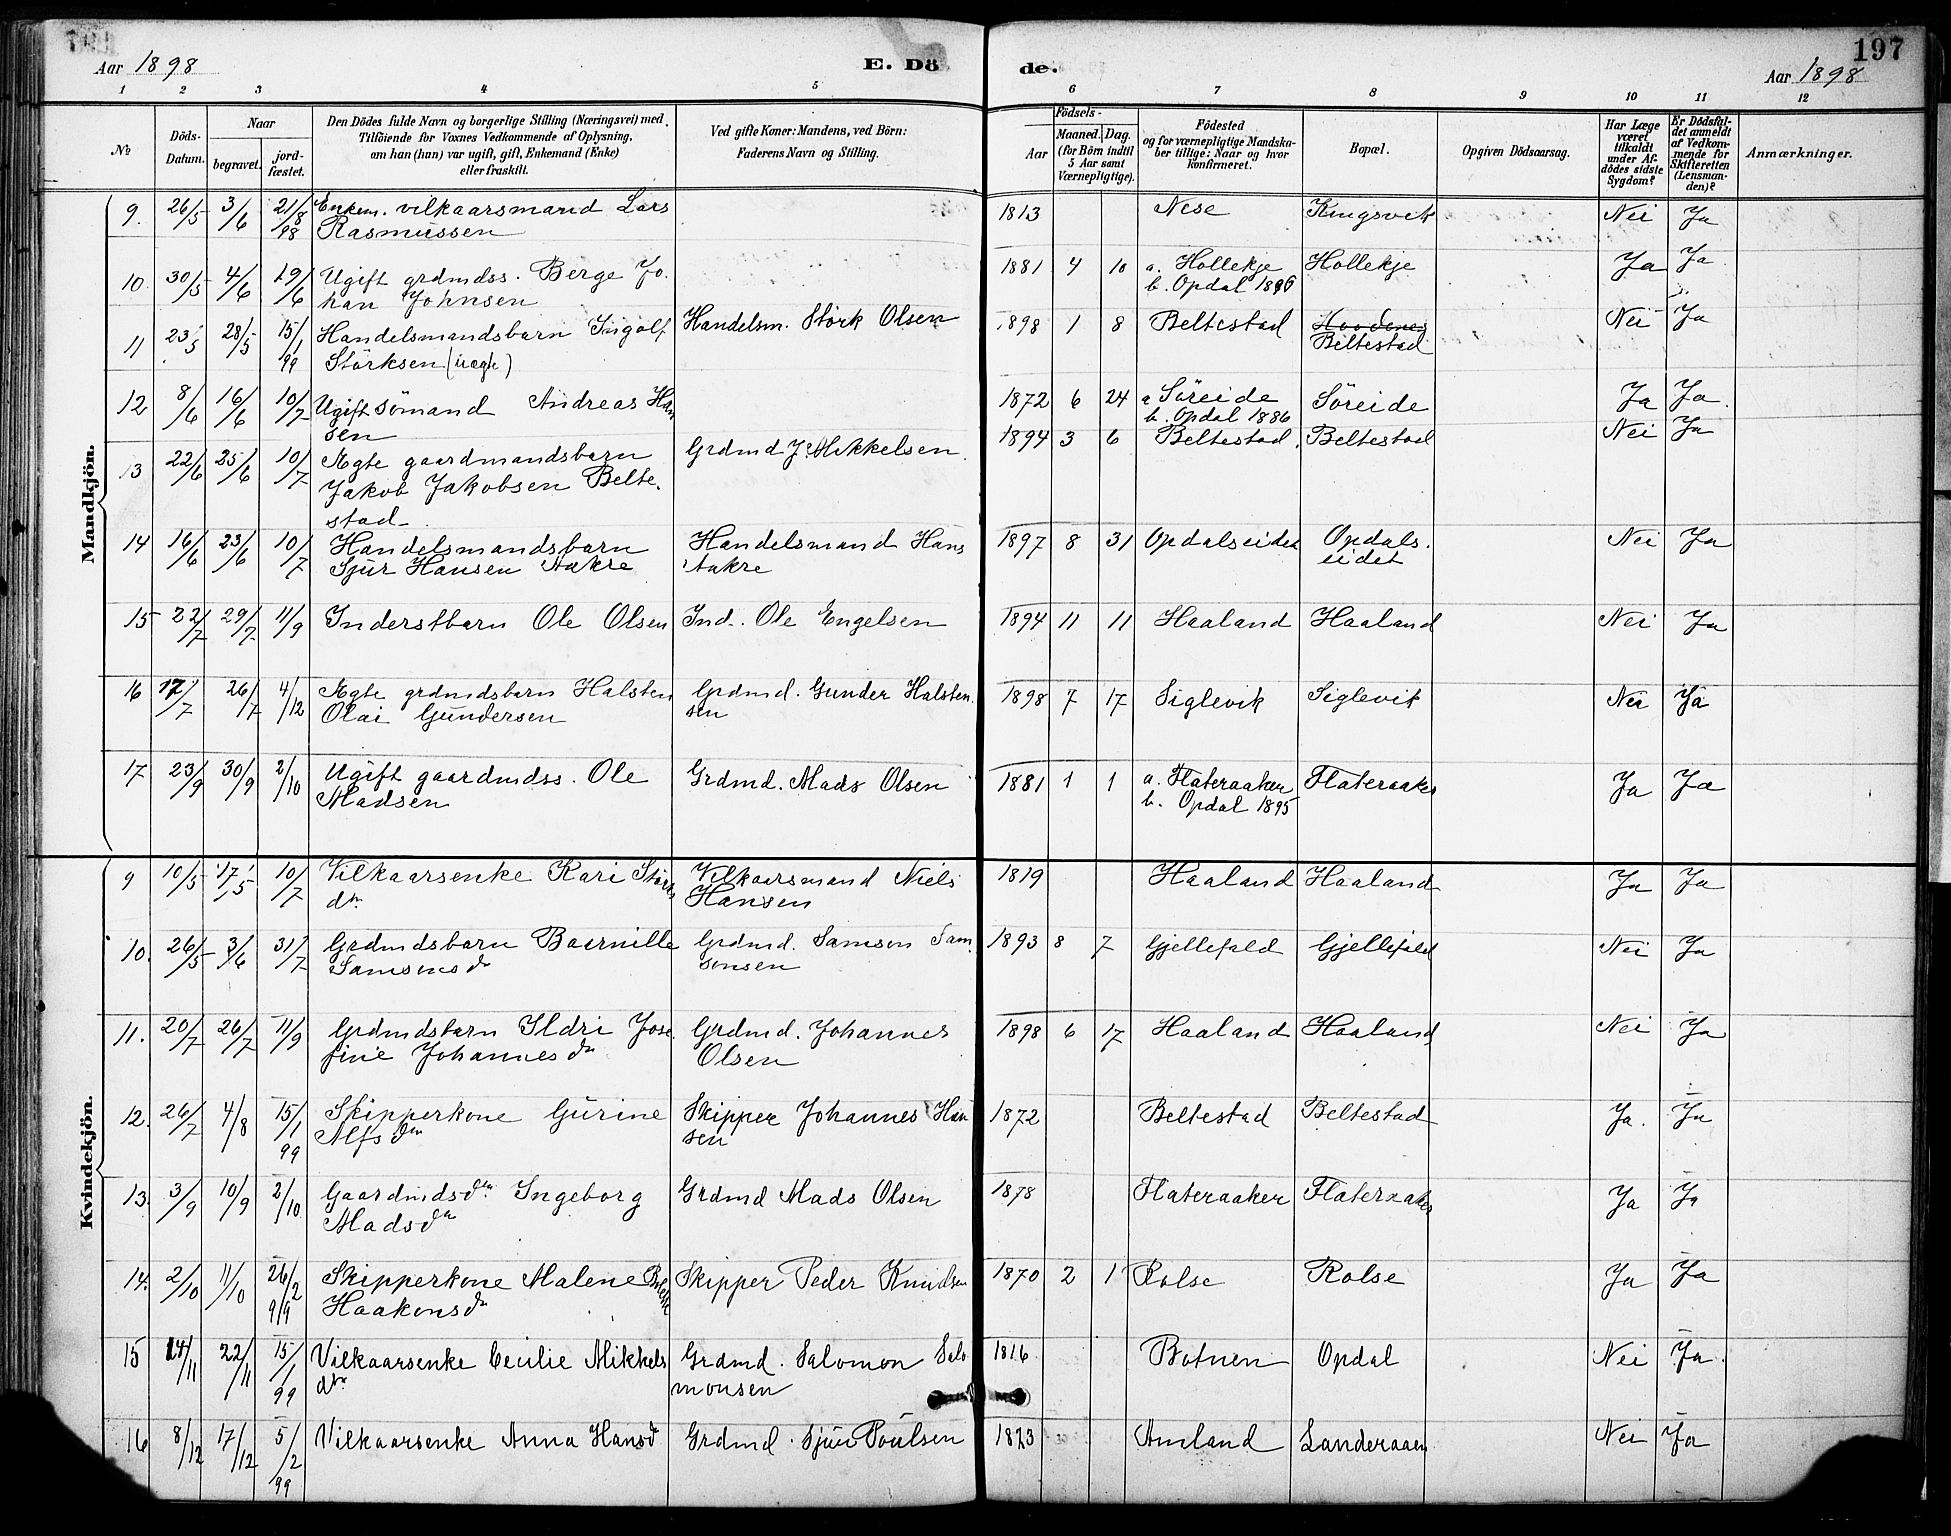 197
Aar 1898
E. Dö
de.
Aar 1898
1 2 3 4 5 6 7 8 9 10 11 12
No
Döds-
Datum.
Naar
begravet.
jord-
fæstet.
Den Dödes fulde Navn og borgerlige Stilling (Næringsvei) med
Tilföiende for Voxnes Vedkommende af Oplysning,
om han (hun) var ugift, gift, Enkemand (Enke)
eller fraskilt.
Ved gifte Koner: Mandens, ved Börn:
Faderens Navn og Stilling.
Födsels-
Aar
Maaned. Dag.
(for Börn indtil
5 Aar samt
Værnepligtige).
Födested
og for værnepligtige Mandska-
ber tillige: Naar og hvor
konfirmeret.
Bopæl.
Opgiven Dödsaarsag.
Har Læge
været
tilkaldt
under Af-
dödes sidste
Sygdom?
Er Dödsfal-
det anmeldt
af Vedkom-
mende for
Skifteretten
(Lensman-
den)?
Anmærkninger.
Mandkjön.
9. 26/5 3/6 21/8 98 Enkem. vilkaarsmand Lars
Rasmussen
1813 Nese Kingsvik Nei Ja
10. 30/5 4/6 19/6 Ugift grdmdss. Berge Jo-
han Johnsen
1881 4 10 a. Hollekje Hollekje Ja Ja
b. Opdal 1896
11 23/5 28/5 15/1 99 Handelsmandsbarn Ingolf
Störksen (uægte)
Handelsm. Störk Olsen
1898 1 8 Beltestad
Beltestad Nei Ja
12 8/6 16/6 10/7 Ugift sömand Andreas Han
sen
1872 6 24 a Söreide Söreide Ja Ja
b. Opdal 1886
13 22/6 25/6 10/7 Ægte gaardmandsbarn
Jakob Jakobsen Belte-
stad
Grdmd J. Mikkelsen
1894 3 6 Beltestad Beltestad Nei Ja
14 16/6 23/6 10/7 Handelsmandsbarn
Sjur Hansen Aakre
Handelsmand Hans
Aakre
1897 8 31 Opdalseidet Opdals-
eidet Nei Ja
15 22/7 29/7 11/9 Inderstbarn Ole Olsen Ind. Ole Engelsen
1894 11 11 Haaland Haaland Nei Ja
16 17/7 26/7 4/12 Ægte grdmdsbarn Halsten
Olai Gundersen
Grdmd. Gunder Halsten
sen
1898 7 17 Siglevik Siglevik Nei Ja
17 23/9 30/9 2/10 Ugift gaardmdss. Ole
Madsen
Grdmd. Mads Olsen
1881 1 1 a. Flateraaker Flateraaker Ja Ja
b. Opdal 1895
Kvindekjön.
9 10/5 17/5 10/7 Vilkaarsenke Kari Störks
dtr
Vilkaarsmand Niels
Hansen
1819 Haaland Haaland Ja Ja
10. 26/5 3/6 31/7 Grdmdsbarn Baernille
Samsonsdr
Grdmd. Samson Sam
sonsen
1893 8 7 Gjellefald Gjellefald Nei Ja
11. 20/7 26/7 11/9 Grdmdsbarn Ildri Jose
fine Johannesdr
Grdmd. Johannes
Olsen
1898 6 17 Haaland Haaland Nei Ja
12. 26/7 4/8 15/1 99 Skipperkone Gurine
Alfsdtr
Skipper Johannes Han
sen
1872 Beltestad Beltestad Ja. Ja
13. 3/9 10/9 2/10 Gaardmdsdtr Ingeborg
Madsdtr
Grdmd Mads Olsen
1878 Flateraaker Flateraaker Ja Ja
14. 2/10 11/10 26/2 99 Skipperkone Malene
Haakonsdr
Skipper Peder Knudsen
1870 2 1 Rolse Rolse Ja Ja
15 14/11 22/11 15/1 99 Vilkaarsenke Cecilie Mikkels
dtr
Grdmd. Salomon Salo
monsen
1816 Botnen Opdal Nei Ja
16 8/12 17/12 5/2 99 Vilkaarsenke Anna Hansdr Grdmd. Sjur Poulsen
1823 Amland Landeraaen Nei Ja